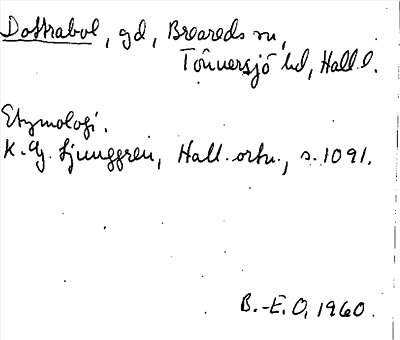 Dottrabol, gd, Breareds sn,
Tönnersjö hd, Hall.l.
Etymologi.
K. G. Ljunggren, Hall. ortn., s. 1091.
B.-E. O, 1960.